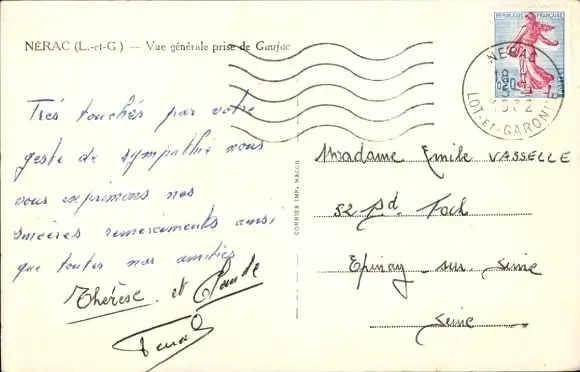 NÉRAC (L.-et-G.) — Vue générale prise de Gaujac
Très touchés par votre
geste de sympathie nous
vous exprimons nos
sincères remerciements ainsi
que toutes nos amitiés
Thérèse et Claude
REPUBLIQUE FRANÇAISE
0,20
NERAC
18
5
1962
LOT-ET-GARONNE
COMBIER IMP. MACON
Madame Emile VASSELLE
52 Bd. Foch
Epinay sur Seine
Seine